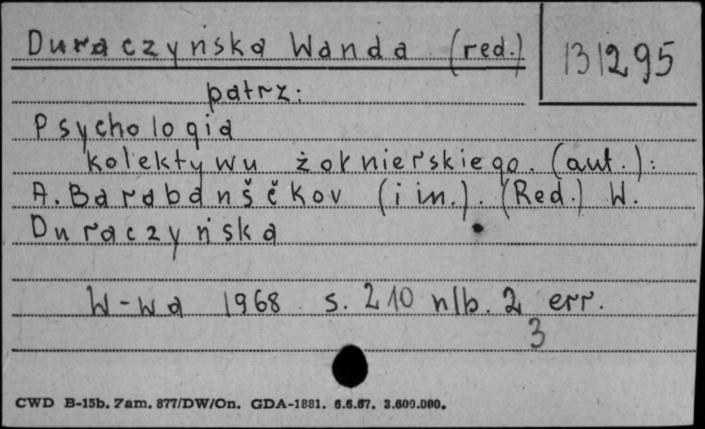 Duraczyńska Wanda (red.) 131295
patrz:
Psychologia
kolektywu żołnierskiego. (aut.):
A. Barabanščkov (i in.). (Red.) W.
Duraczyńska
W-wa 1968 s. 210 nlb. 2 err.
3
CWD B-15b. Zam. 877/DW/On. GDA-1881. 6.6.67. 3.600.000.